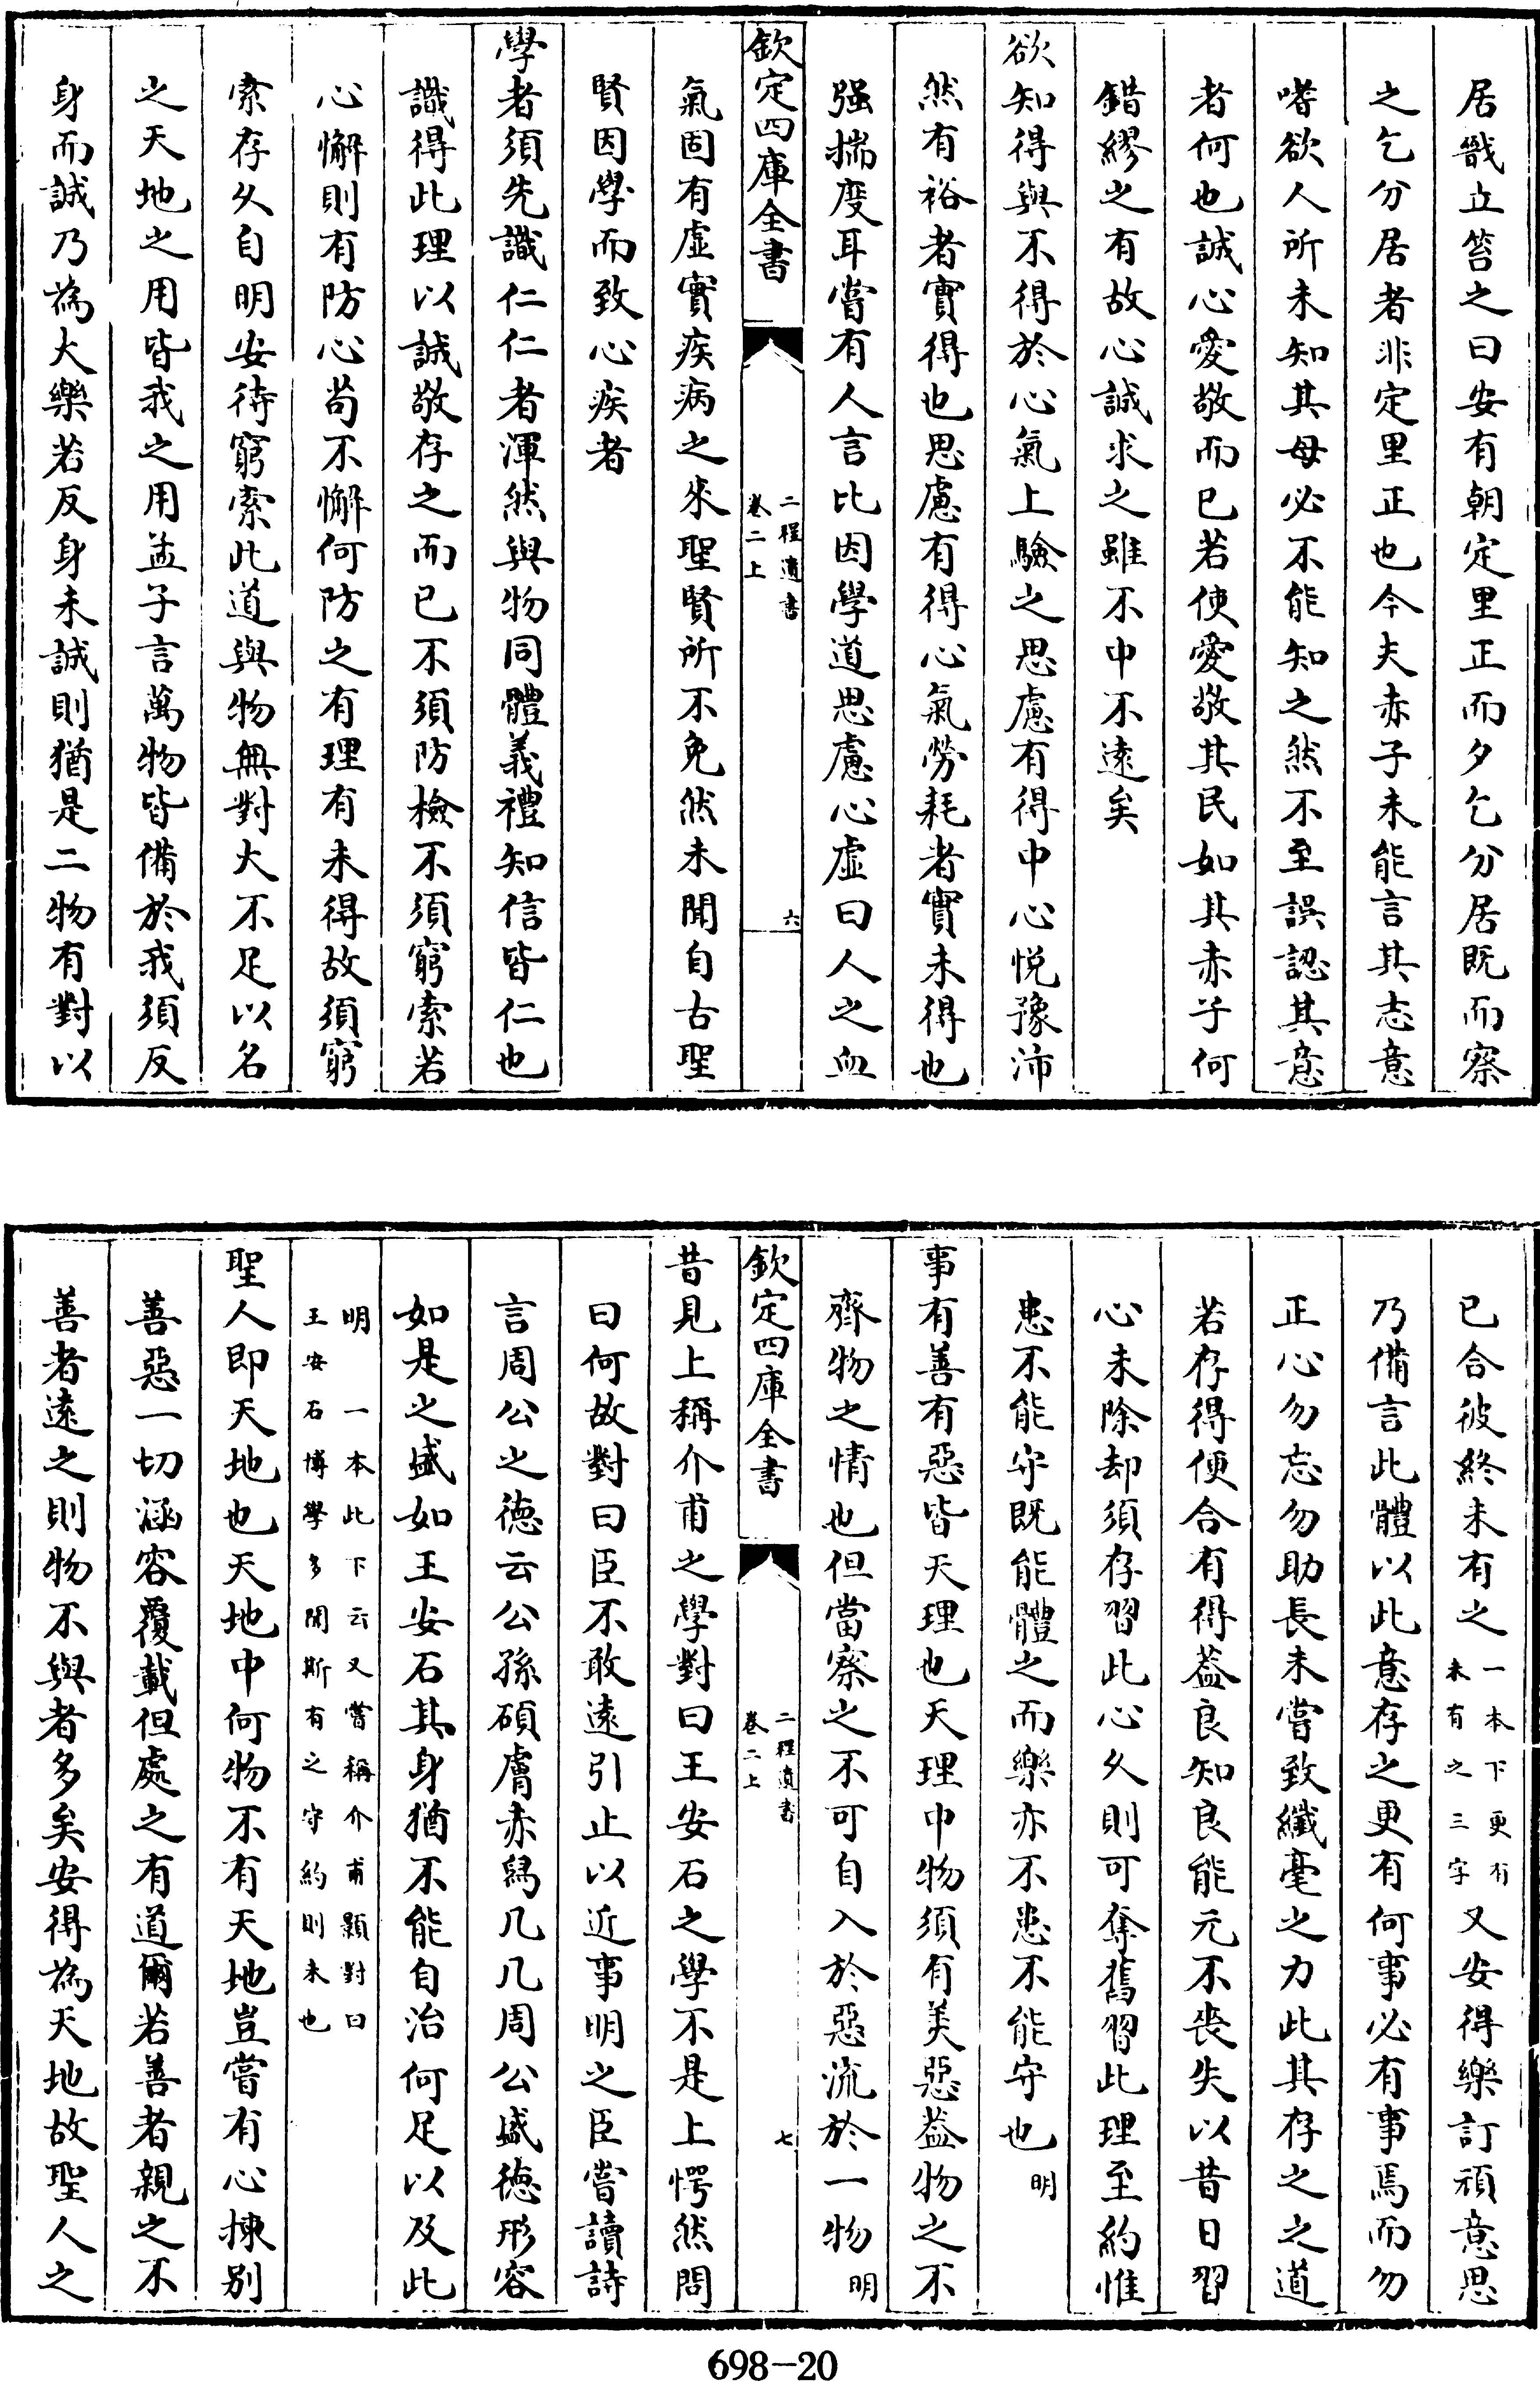 居戬立笞之曰安有朝定里正而夕乞分居既而察
之乞分居者非定里正也今夫赤子未能言其志意
嗜欲人所未知其母必不能知之然不至誤認其意
者何也誠心愛敬而已若使愛敬其民如其赤子何
錯繆之有故心誠求之雖不中不遠矣
欲知得與不得於心氣上驗之思慮有得中心悦豫沛
然有裕者實得也思慮有得心氣勞耗者實未得也
强揣度耳嘗有人言比因學道思慮心虛曰人之血
欽定四庫全書
二程遺書
卷二上
六
氣固有虛實疾病之來聖賢所不免然未聞自古聖
賢因學而致心疾者
學者須先識仁仁者渾然與物同體義禮知信皆仁也
識得此理以誠敬存之而已不須防檢不須窮索若
心懈則有防心苟不懈何防之有理有未得故須窮
索存久自明安待窮索此道與物無對大不足以名
之天地之用皆我之用孟子言萬物皆備於我須反
身而誠乃為大樂若反身未誠則猶是二物有對以
已合彼終未有之一本下更有未有之三字又安得樂訂頑意思
乃備言此體以此意存之更有何事必有事焉而勿
正心勿忘勿助長未嘗致纖毫之力此其存之之道
若存得便合有得葢良知良能元不喪失以昔日習
心未除却須存習此心久則可奪舊習此理至約惟
患不能守既能體之而樂亦不患不能守也明
事有善有惡皆天理也天理中物須有美惡葢物之不
齊物之情也但當察之不可自入於惡流於一物明
欽定四庫全書
二程遺書
卷二上
七
昔見上稱介甫之學對曰王安石之學不是上愕然問
曰何故對曰臣不敢遠引止以近事明之臣嘗讀詩
言周公之德云公孫碩膚赤舄几几周公盛德形容
如是之盛如王安石其身猶不能自治何足以及此
明 一本此下云又嘗稱介甫顥對曰
王安石博學多聞斯有之守約則未也
聖人即天地也天地中何物不有天地豈嘗有心揀别
善惡一切涵容覆載但處之有道爾若善者親之不
善者遠之則物不與者多矣安得為天地故聖人之
698-20